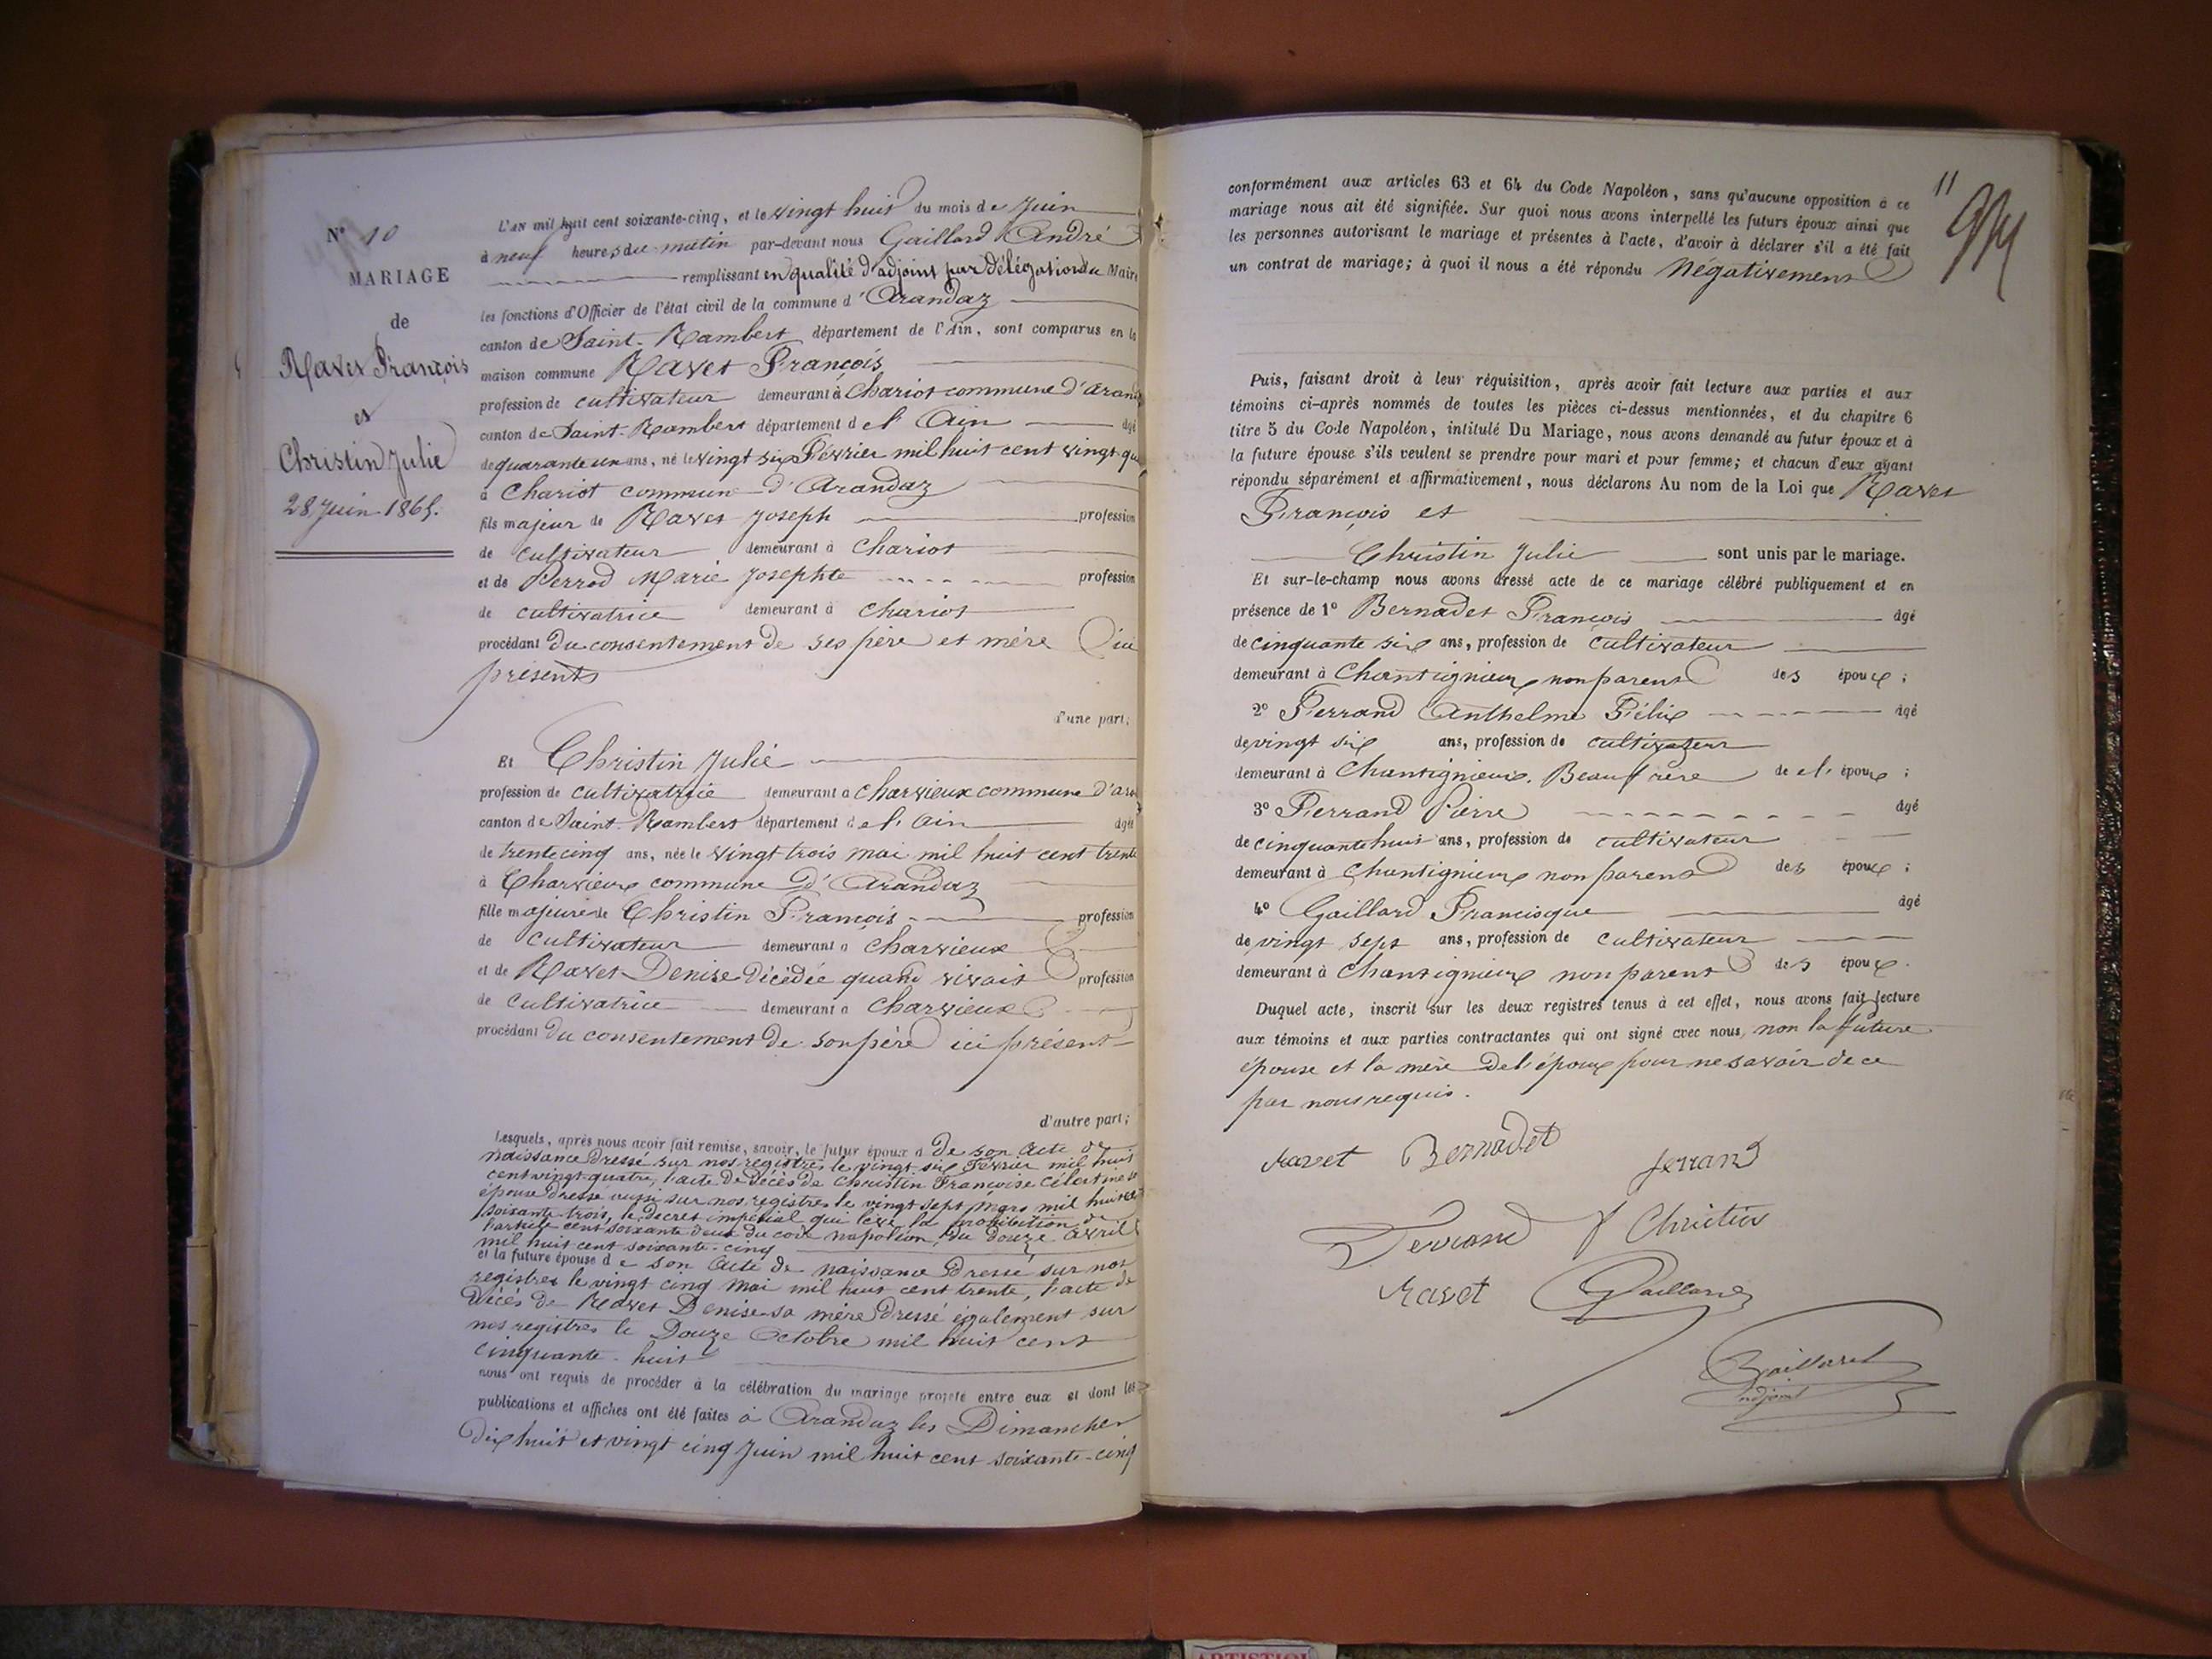 N° 10
MARIAGE
de
Ravet François
et
Christin Julie
28 Juin 1865.
L'AN mil huit cent soixante-cinq, et le vingt huit du mois de Juin
à neuf heures du matin par-devant nous Gaillard André
remplissant en qualité d'adjoint par délégation du Maire
les fonctions d'Officier de l'état civil de la commune d'Arandaz
canton de Saint-Rambert département de l'Ain, sont comparus en la
maison commune Ravet François
profession de cultivateur demeurant à Chariot commune d'Arand
canton de Saint-Rambert département de l'Ain âgé
de quarante un ans, né le vingt six Février mil huit cent vingt qu
à Chariot commune d'Arandaz
fils majeur de Ravet Joseph profession
de cultivateur demeurant à Chariot
et de Perrod Marie Josephte profession
de cultivatrice demeurant à Chariot
procédant du consentement de ses père et mère ici
présents
d'une part;
Et Christin Julie
profession de cultivatrice demeurant à Charvieux commune d'ara
canton de Saint-Rambert département de l'Ain âgée
de trente cinq ans, née le vingt trois mai mil huit cent trente
à Charvieux commune d'Arandaz
fille majeure de Christin François profession
de cultivateur demeurant à Charvieux
et de Ravet Denise décédée quand vivait profession
de cultivatrice demeurant à Charvieux
procédant du consentement de son père ici présent
d'autre part;
Lesquels, après nous avoir fait remise, savoir, le futur époux d De son acte de
naissance dressé sur nos registres le vingt six Février mil huit
cent vingt-quatre, l'acte de décès de Christin Françoise Célestine
épouse dressé aussi sur nos registres le vingt sept mars mil huit cent
soixante-trois, le décret impérial qui lève la prohibition de
l'article cent soixante deux du code napoléon, du douze avril
mil huit cent soixante-cinq
et la future épouse de son acte de naissance dressé sur nos
registres le vingt cinq mai mil huit cent trente, l'acte de
décès de Ravet Denise sa mère dressé également sur
nos registres le Douze Octobre mil huit cent
cinquante-huit
nous ont requis de procéder à la célébration du mariage projeté entre eux et dont les
publications et affiches ont été faites à Arandaz les Dimanches
dix huit et vingt cinq Juin mil huit cent soixante-cinq
11
conformément aux articles 63 et 64 du Code Napoléon, sans qu'aucune opposition à ce
mariage nous ait été signifiée. Sur quoi nous avons interpellé les futurs époux ainsi que
les personnes autorisant le mariage et présentes à l'acte, d'avoir à déclarer s'il a été fait
un contrat de mariage; à quoi il nous a été répondu Négativement
Puis, faisant droit à leur réquisition, après avoir fait lecture aux parties et aux
témoins ci-après nommés de toutes les pièces ci-dessus mentionnées, et du chapitre 6
titre 5 du Code Napoléon, intitulé Du Mariage, nous avons demandé au futur époux et à
la future épouse s'ils veulent se prendre pour mari et pour femme; et chacun d'eux ayant
répondu séparément et affirmativement, nous déclarons Au nom de la Loi que Ravet
François et
Christin Julie sont unis par le mariage.
Et sur-le-champ nous avons dressé acte de ce mariage célébré publiquement et en
présence de 1° Bernadet François âgé
de cinquante six ans, profession de cultivateur
demeurant à Chantignieux non parent des époux;
2° Ferrand Anthelme Félix âgé
de vingt six ans, profession de cultivateur
demeurant à Chantignieux. Beaufrère de l'époux;
3° Ferrand Pierre âgé
de cinquante huit ans, profession de cultivateur
demeurant à Chantignieux non parent des époux;
4° Gaillard Francisque âgé
de vingt sept ans, profession de cultivateur
demeurant à Chantignieux non parent des époux.
Duquel acte, inscrit sur les deux registres tenus à cet effet, nous avons fait lecture
aux témoins et aux parties contractantes qui ont signé avec nous, non la future
épouse et la mère de l'époux pour ne savoir de ce
par nous requis.
Ravet Bernadet
ferrand
Ferrand f Christin
Ravet Gaillard
Gaillard
adjoint